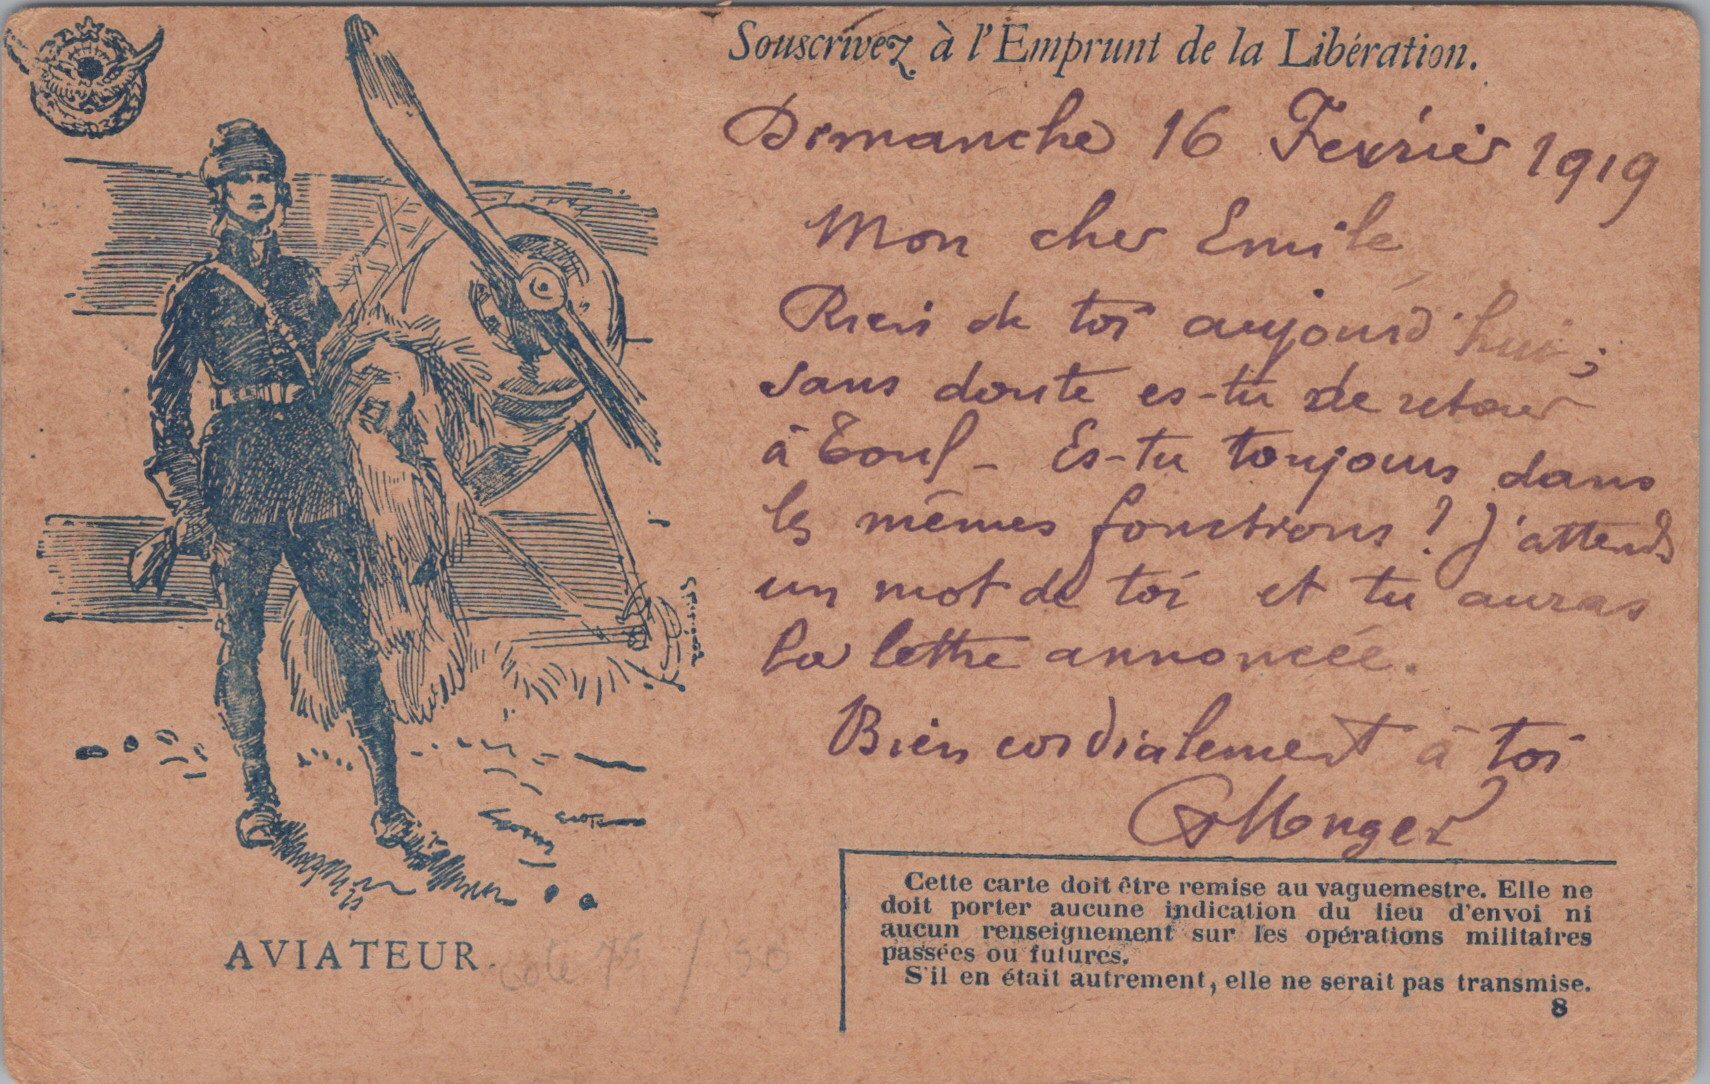 Souscrivez à l'Emprunt de la Libération.
Dimanche 16 Fevrier 1919
Mon cher Emile
Rien de toi aujourd'hui ;
sans doute es-tu de retour
à Toul - Es-tu toujours dans
les mêmes fonctions ? J'attends
un mot de toi et tu auras
la lettre annoncée.
Bien cordialement à toi
AVIATEUR.
Cette carte doit être remise au vaguemestre. Elle ne
doit porter aucune indication du lieu d'envoi ni
aucun renseignement sur les opérations militaires
passées ou futures.
S'il en était autrement, elle ne serait pas transmise.
8